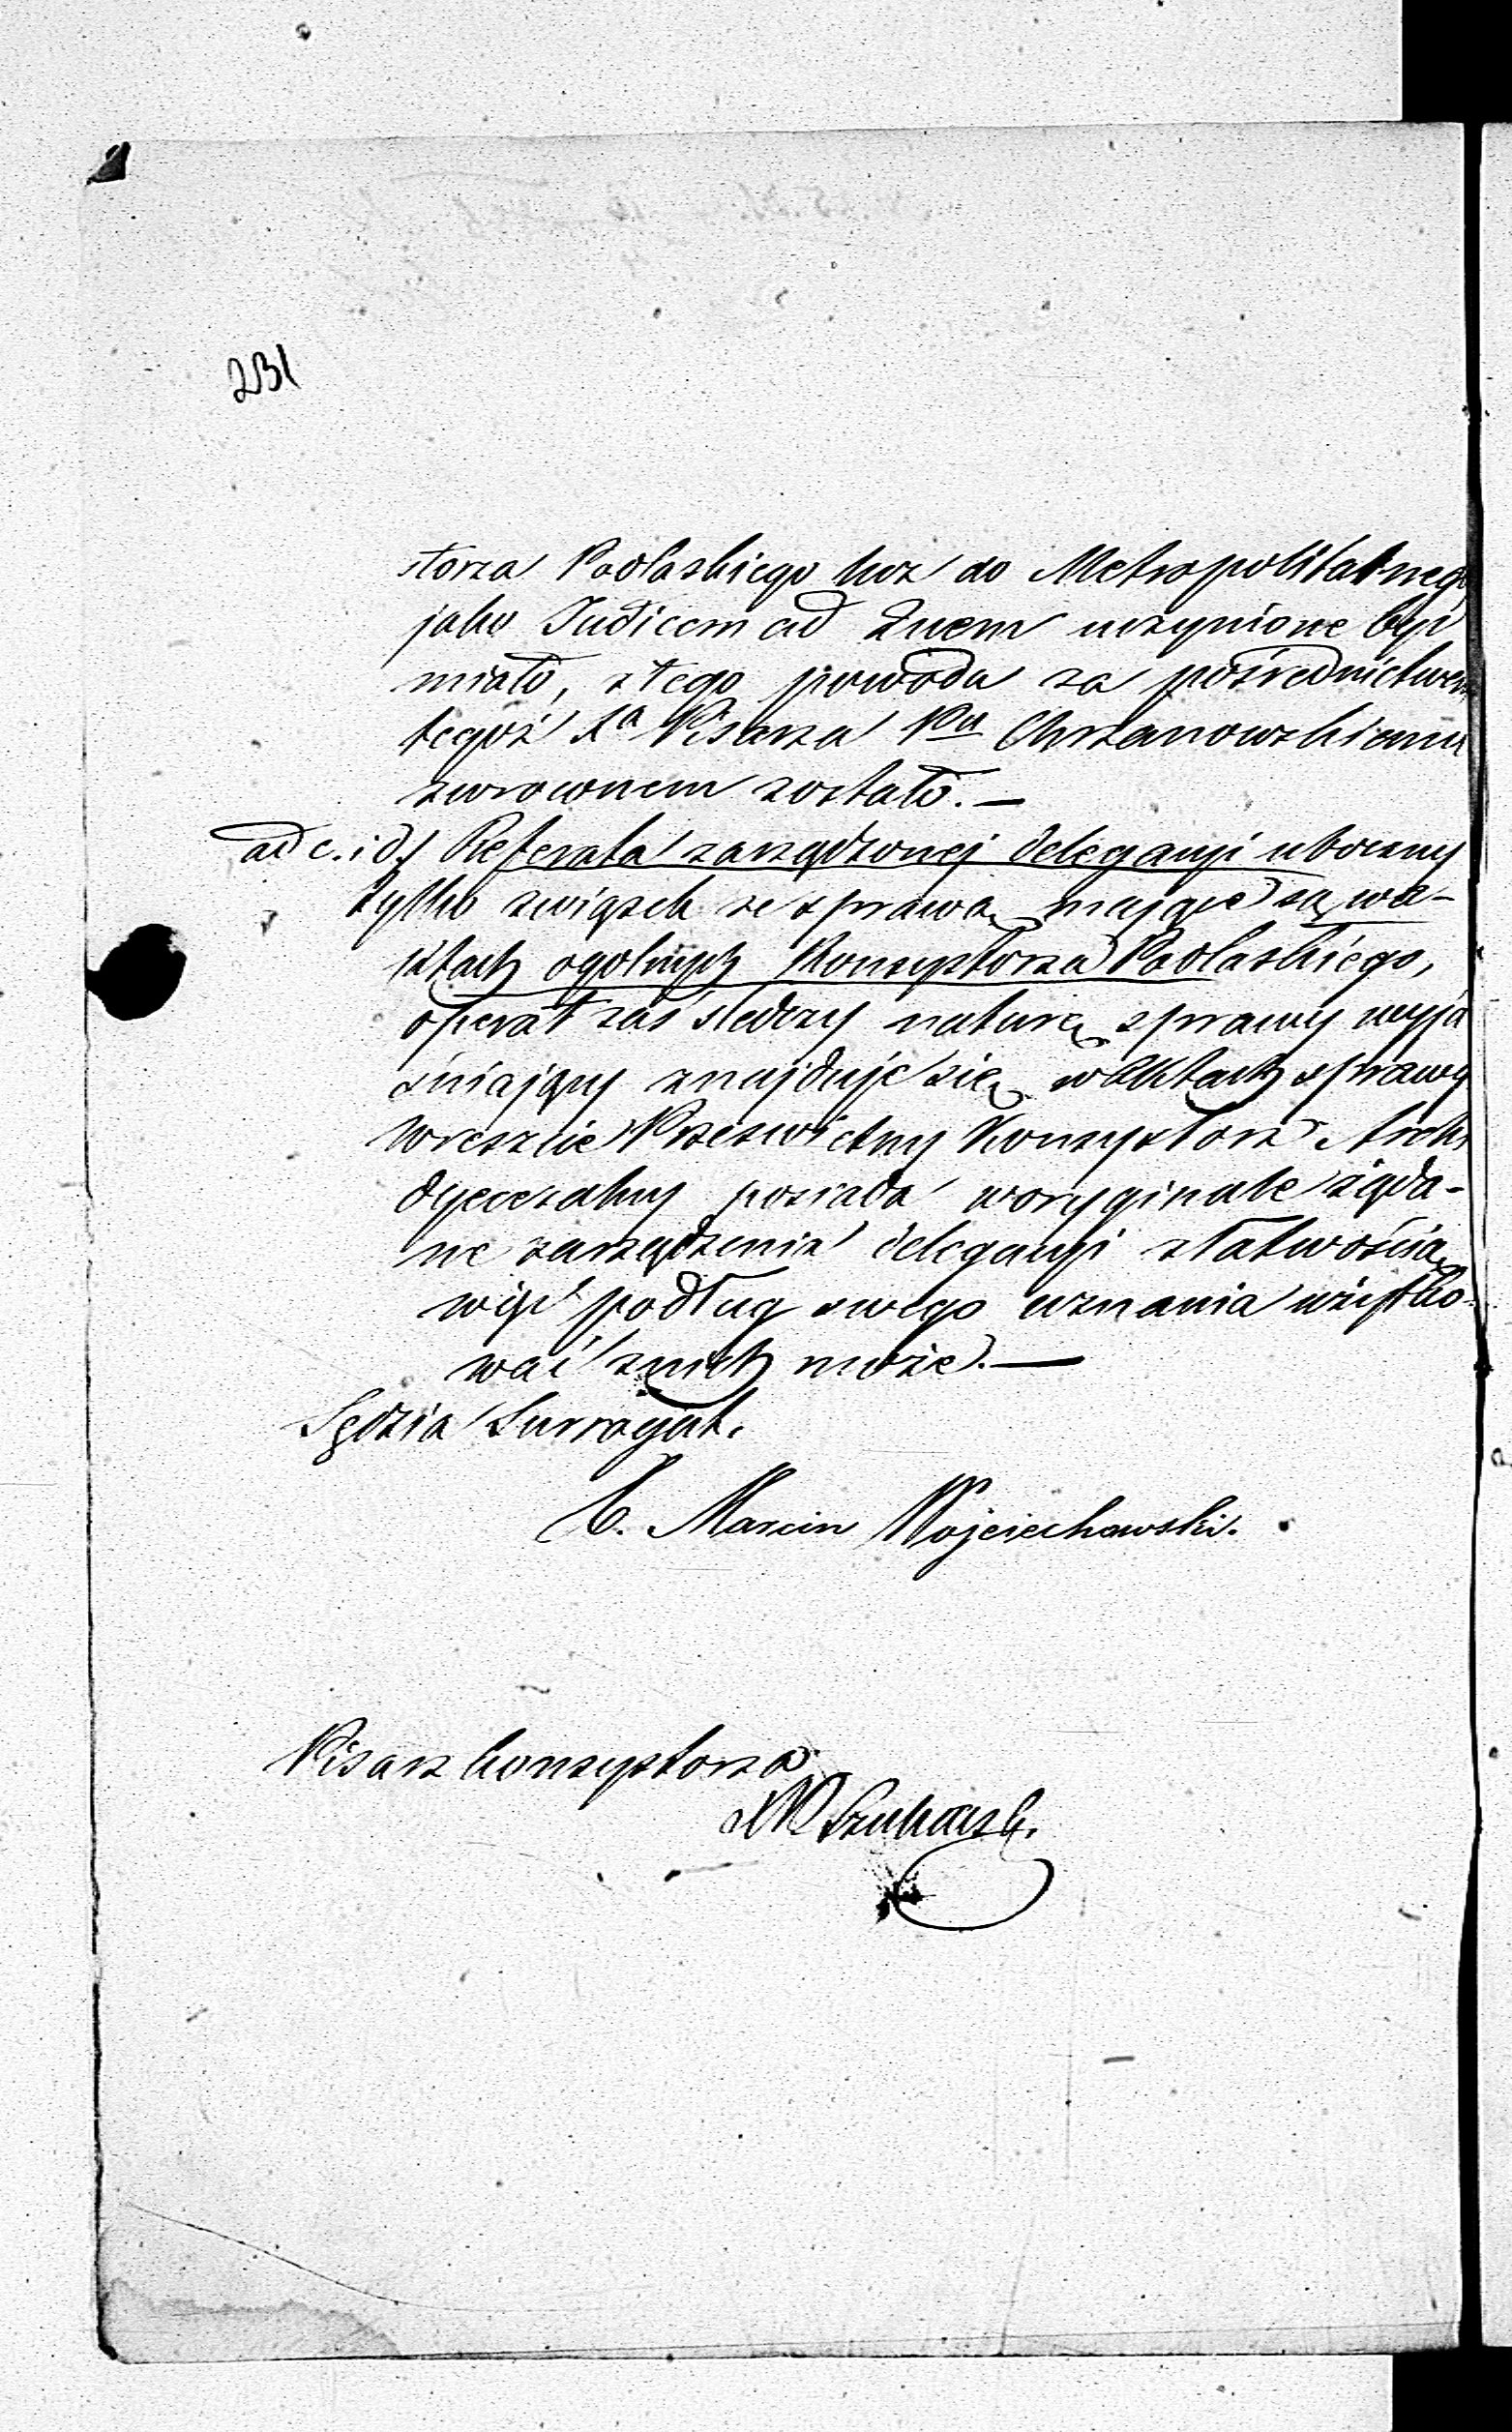 231
storza Podlaskiego lecz do Metropolitalnego
jako Judicem ad Quem uczynione być
miało, z tego powodu za pośrednictwem
tegoż Xa Pisarza Pu Chrzanowskiemu
zwrócanem zostało. —
ad c. i d.) Referata zarządzonej delegacyi uboczny
tylko związek ze sprawą mające są w a-
ktach ogólnych Konsystorza Podlaskiego,
operat zaś śledczy naturę sprawy wyja
śniający znajduje się w aktach sprawy
wreszcie Prześwietny Konsystorz Archi
dyecezalny posiada w oryginale żąda-
ne zarządzenia delegacyi z łatwością
więc podług swego uznania użytko-
wać z nich może. —
Sędzia Surrogat.
Marcin Wojciechowski.
Pisarz Konsystorza